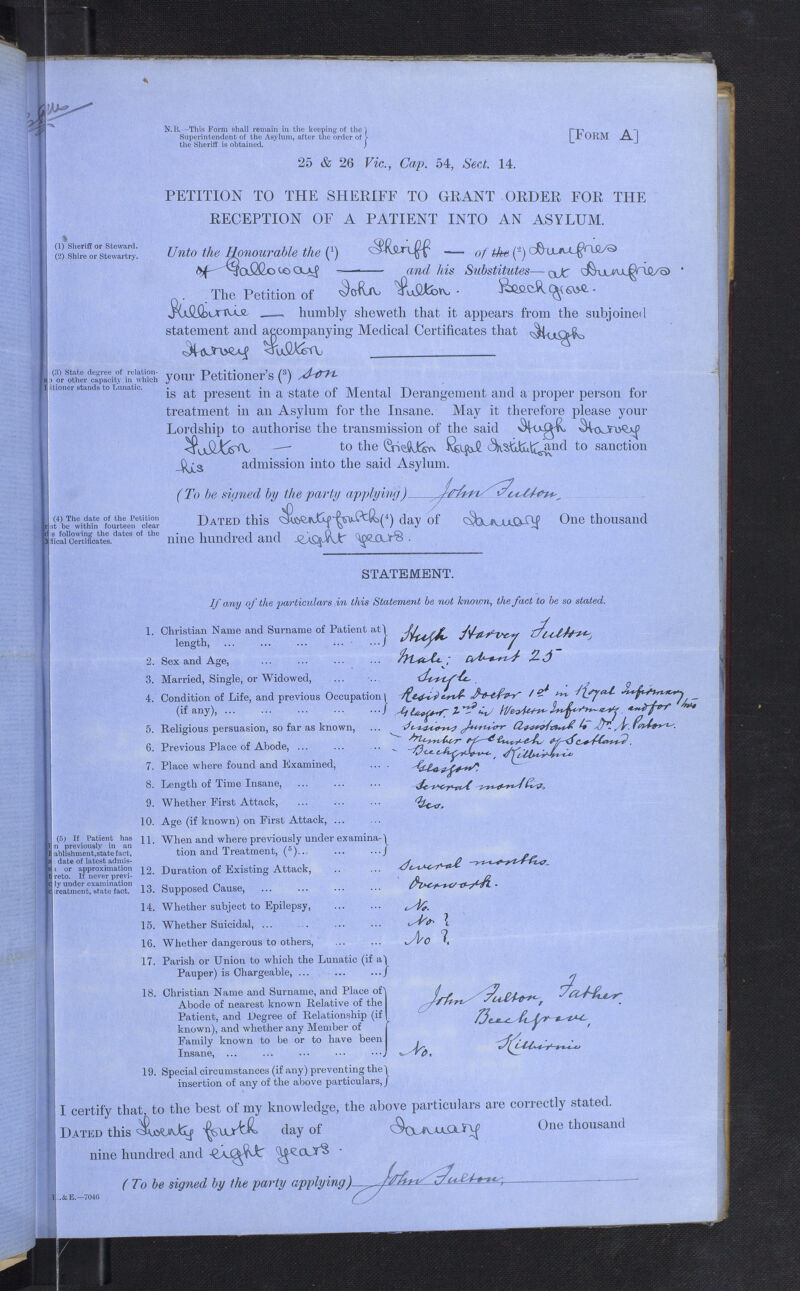 N.B.—This Form shall remain in the keeping of the
Superintendent of the Asylum, after the order of
the Sheriff is obtained.
[FORM A]
25 & 26 Vic., Cap. 54, Sect. 14.
PETITION TO THE SHERIFF TO GRANT ORDER FOR THE
RECEPTION OF A PATIENT INTO AN ASYLUM.
(1) Sheriff or Steward.
(2) Shire or Stewartry.
Unto the Honourable the (1) Sheriff — of the (2) Dumfries
& Galloway — and his Substitutes— at Dumfries.
The Petition of John Fulton. Beechgrove.
Kilbirnie — humbly sheweth that it appears from the subjoined
statement and accompanying Medical Certificates that Hugh
Harvey Fulton
(3) State degree of relation-
or other capacity in which
itioner stands to Lunatic.
your Petitioner's (3) son
is at present in a state of Mental Derangement and a proper person for
treatment in an Asylum for the Insane. May it therefore please your
Lordship to authorise the transmission of the said Hugh Harvey
Fulton — to the Crichton Royal Institution and to sanction
his admission into the said Asylum.
(To be signed by the party applying) John Fulton,
(4) The date of the Petition
st be within fourteen clear
s following the dates of the
dical Certificates.
DATED this Twenty fourth (4) day of January One thousand
nine hundred and eight years.
STATEMENT.
If any of the particulars in this Statement be not known, the fact to be so stated.
1. Christian Name and Surname of Patient at
length, ... Hugh Harvey Fulton,
2. Sex and Age, ... Male; about 25
3. Married, Single, or Widowed, ... Single
4. Condition of Life, and previous Occupation
(if any), ... Resident Doctor 1st in Royal Infirmary
Glasgow, 2nd in Western Infirmary and for two
Sessions Junior Assistant to Dr. N. Paton.
5. Religious persuasion, so far as known, ... Member of Church of Scotland.
6. Previous Place of Abode, ... Beechgrove, Kilbirnie
7. Place where found and Examined, ... Glasgow.
8. Length of Time Insane, ... Several months.
9. Whether First Attack, ... Yes.
10. Age (if known) on First Attack, ...
(5) If Patient has
n previously in an
ablishment, state fact,
date of latest admis-
or approximation
reto. If never previ-
ly under examination
treatment, state fact.
11. When and where previously under examina-
tion and Treatment, (5)...
12. Duration of Existing Attack, ... Several months.
13. Supposed Cause, ... Overwork.
14. Whether subject to Epilepsy, ... No.
15. Whether Suicidal, ... No ?
16. Whether dangerous to others, ... No ?
17. Parish or Union to which the Lunatic (if a
Pauper) is Chargeable, ...
18. Christian Name and Surname, and Place of
Abode of nearest known Relative of the
Patient, and Degree of Relationship (if
known), and whether any Member of
Family known to be or to have been
Insane, ...
John Fulton, Father.
Beechgrove,
No. Kilbirnie
19. Special circumstances (if any) preventing the
insertion of any of the above particulars,
I certify that, to the best of my knowledge, the above particulars are correctly stated.
DATED this Twenty fourth day of January One thousand
nine hundred and eight years.
(To be signed by the party applying) John Fulton,
. & E.—7046